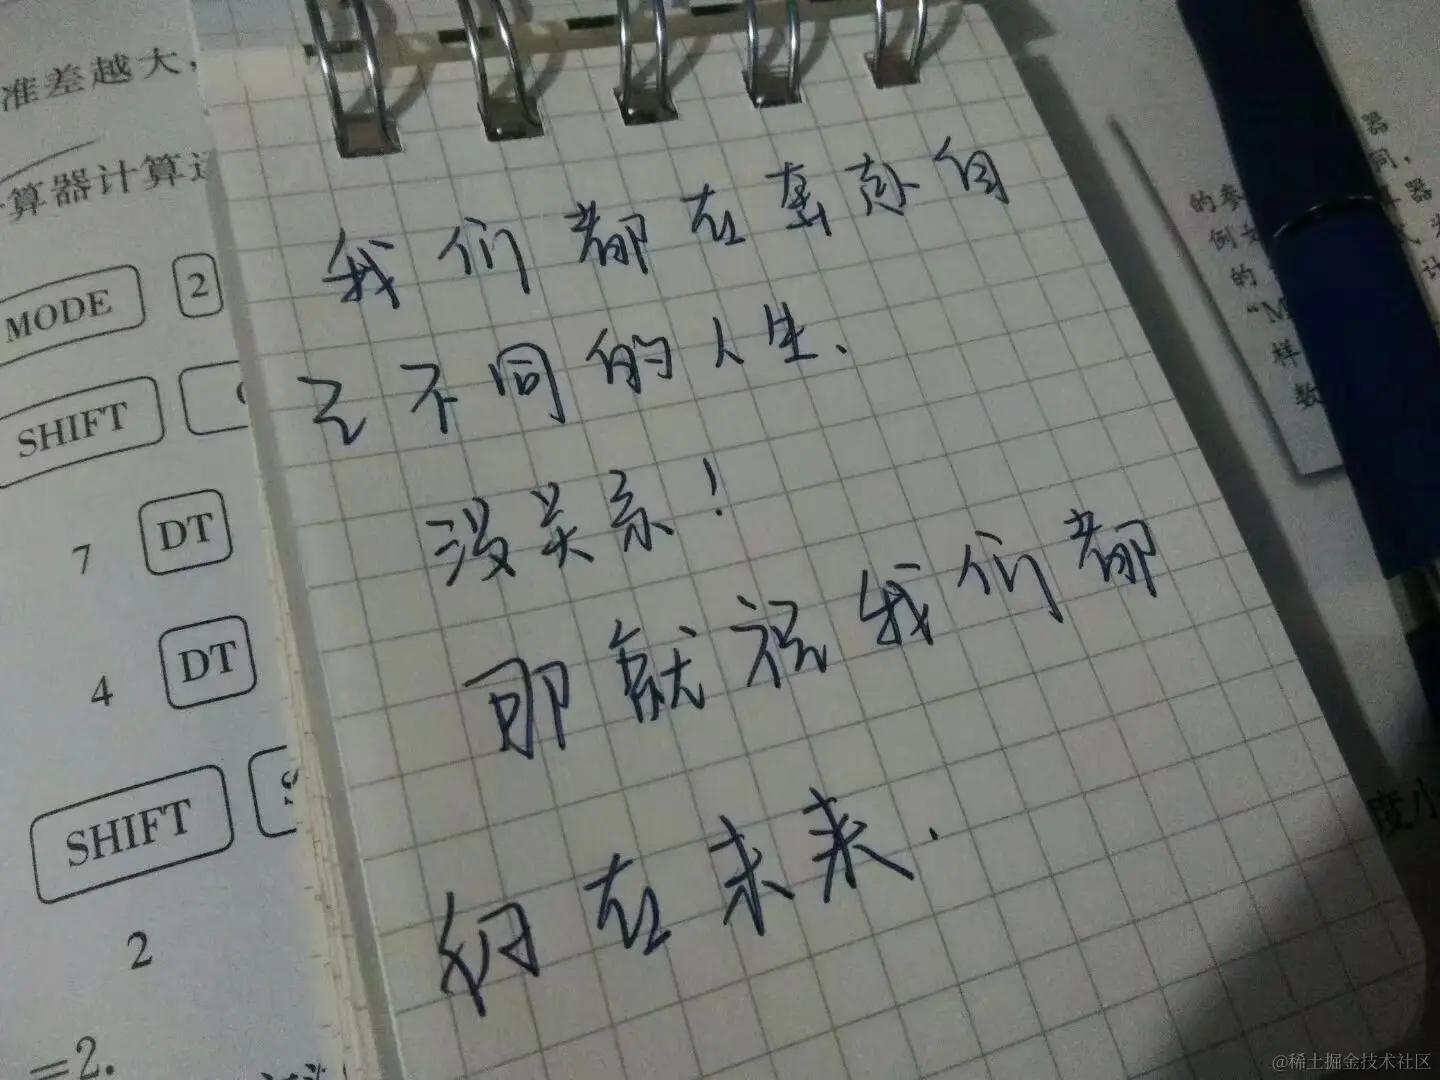 准差越大,
算器计算
MODE 2
SHIFT
7 DT
4 DT
SHIFT
2
=2.
我们都在奔赴自
己不同的人生、
没关系!
那就祝我们都
约在未来.
器
的参 同,
例如 器
的
“M
样
数
度小
@稀土掘金技术社区